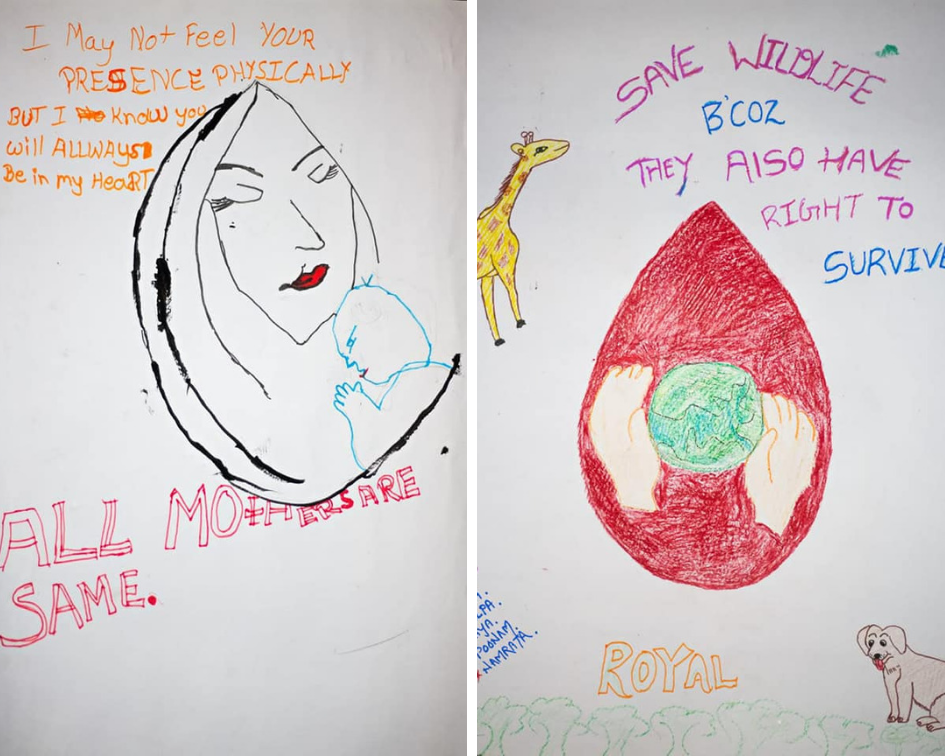 I May Not Feel YOUR
PRESENCE PHYSICALLY
BUT I Know you
will ALLWAYS
Be in my HeaRT
ALL MOTHERS ARE
SAME.
SAVE WILDLIFE
B'COZ
THEY AlSO HAVE
RIGHT TO
SURVIVE
POONAM.
NAMRATA.
ROYAL